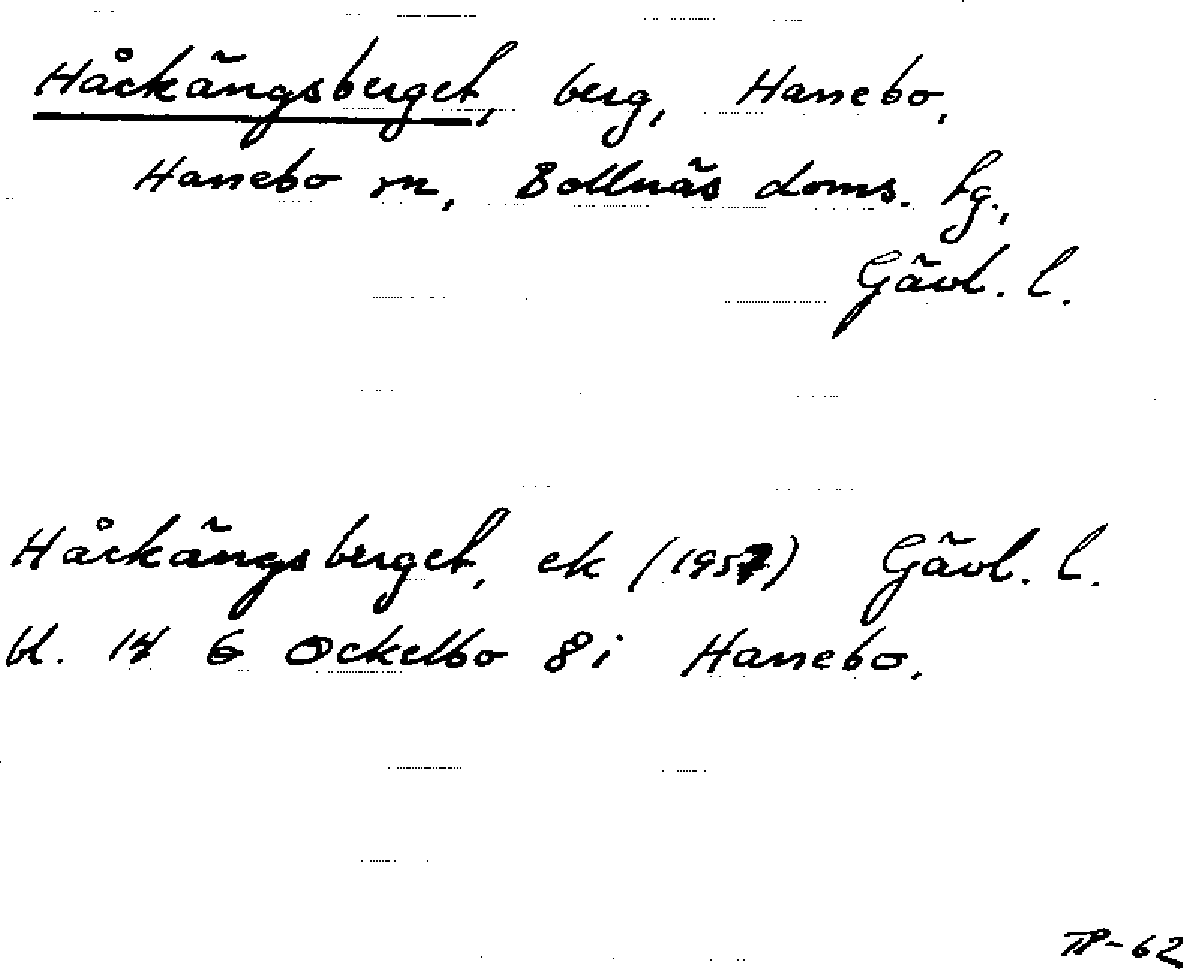 Håckängsberget, berg, Hanebo,
Hanebo sn, Bollnäs doms. hg.,
Gävl. l.
Håckängsberget, ek (1957) Gävl. l.
bl. 14 G Ockelbo 8 i Hanebo.
TP-62